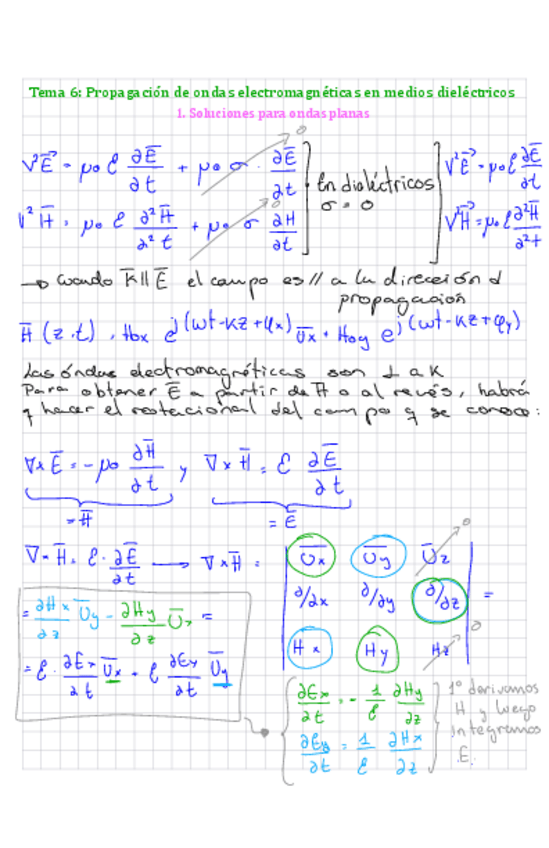 Tema 6: Propagación de ondas electromagnéticas en medios dieléctricos
1. Soluciones para ondas planas
∇²E = μ₀ ε ∂E/∂t + μ₀ σ · ∂E/∂t → 0
∇² H = μ₀ ε ∂²H/∂²t + μ₀ σ ∂H/∂t → 0
En dieléctricos
σ = 0
∇²E = μ₀ε ∂E/∂t
∇²H = μ₀ε ∂²H/∂²t
→ cuando K || E el campo es // a la dirección d
propagación
H (z,t) = Hox e^j(ωt-Kz+φx) Ux + Hoy e^j(ωt-Kz+φy)
Las óndas electromagnéticas son ⊥ a K
Para obtener E a partir de H o al revés, habrá
q hacer el rotacional del campo q se conoce:
∇x E = -μ₀ ∂H/∂t y ∇x H = ε ∂E/∂t
= H
= E
∇×H = ε · ∂E/∂t → ∇ x H =
Ux Uy Uz → 0
∂/∂x ∂/∂y ∂/∂z =
Hx Hy Hz → 0
= ∂Hx/∂z Uy - ∂Hy/∂z Ux =
= ε · ∂Ex/∂t Ux + ε ∂Ey/∂t Uy
∂Ex/∂t = - 1/ε ∂Hy/∂z
∂Ey/∂t = 1/ε ∂Hx/∂z
1º derivamos
H y luego
integramos
E.